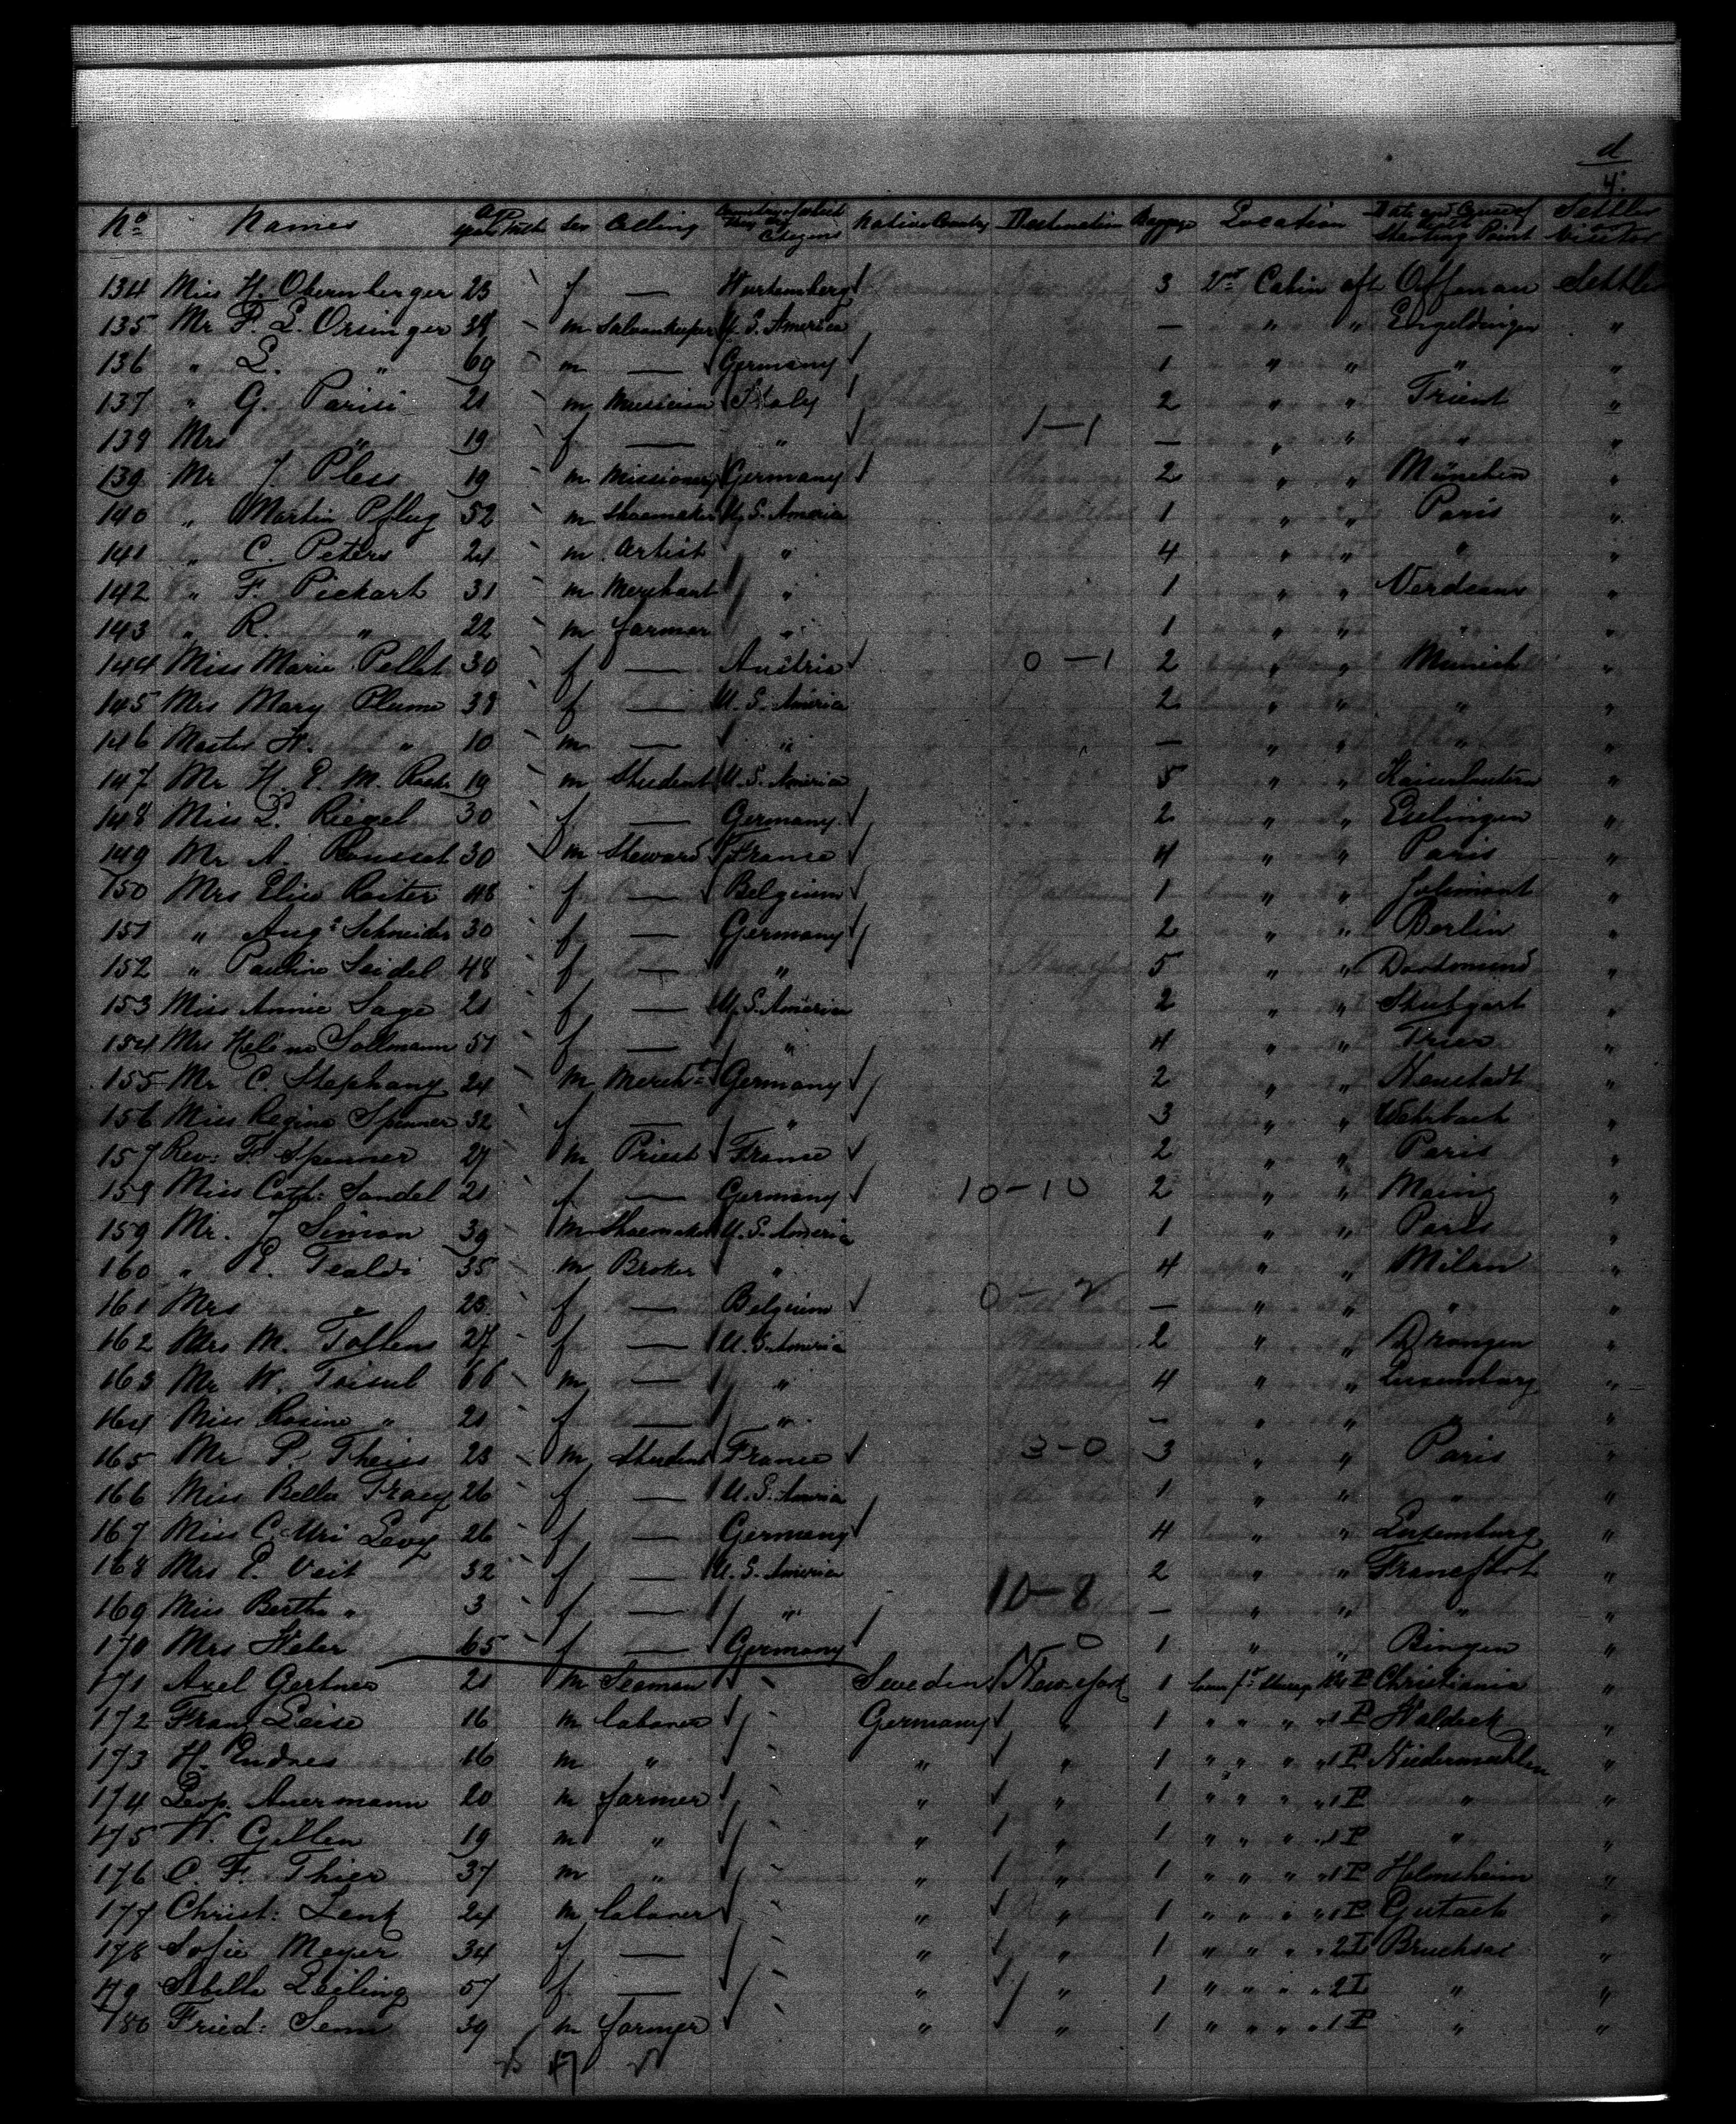 d
4
No Names Age years Mth Sex Calling Countries of which they are Citizens Native Country Destination Baggage Location Date and Cause of Death Starting Point Settler or Visitor
134 Miss H. Obernberger 23 f — Wurtemberg 3 2nd Cabin aft Offenau Settler
135 Mr F. L. Orsinger 38 m Saloonkeeper U. S. America — " " Engeldingen "
136 " L. " 69 m — Germany 1 " " " "
137 " G. Parisi 21 m Musician Italy 2 " " Trient "
138 Mrs " 19 f — " 1-1 — " " " "
139 Mr J. Pless 19 m Missionary Germany 2 " " München "
140 " Martin Pflug 52 m Shoemaker U. S. America 1 " " Paris "
141 " C. Peters 24 m Artist " 4 " " " "
142 " F. Pickart 31 m Merchant " 1 " " "
143 " R. " 22 m farmer " 1 " " " "
144 Miss Marie Pellet 30 f — Austria 0-1 2 " " Munich "
145 Mrs Mary Plume 38 f — U. S. America 2 " " " "
146 Master H. " 10 m — " — " " " "
147 Mr H. E. M. 19 m Student U. S. America 5 " " Kaiserlautern "
148 Miss L. Riegel 30 f — Germany 2 " " Esslingen "
149 Mr A. Rousset 30 m Steward France 4 " " Paris "
150 Mrs Elise Reiter 48 f — Belgium 1 " " Jolimont "
151 " Aug. Schneider 30 f — Germany 2 " " Berlin "
152 " Pauline Seidel 48 f — " 5 " " Dordmund "
153 Miss Annie Sage 21 f — U. S. America 2 " " Stutgart "
154 Mrs Helene Sollmann 51 f — " 4 " " Trier "
155 Mr C. Stephany 24 m Mercht Germany 2 " " Neustadt "
156 Miss Regina Spenner 32 f — " 3 " " "
157 Rev: F. Spenner 27 m Priest France 2 " " Paris "
158 Miss Cath: Sandel 21 f — Germany 10-10 2 " " Mainz "
159 Mr. J Simon 39 m Shoemaker U. S. America 1 " " Paris "
160 " E. Tealdi 35 m Broker " 4 " " Milan "
161 Mrs " 23 f — Belgium 0-2 — " " " "
162 Mrs M. Toftens 27 f — U. S. America 2 " " Drongen "
163 Mr W. 66 m — " 4 " " Luxemburg "
164 Miss Rosine " 21 f — " — " " " "
165 Mr P. Theiss 23 m Student France 3-0 3 " " Paris "
166 Miss Bella Tracy 26 f — U. S. America 1 " " " "
167 Miss C. Uri Levy 26 f — Germany 4 " " Luxemburg "
168 Mrs E. Veit 32 f — U. S. America 2 " " Francfort "
169 Miss Bertha " 3 f — " 10-8 — " " " "
170 Mrs Weber 65 f — Germany 0 1 " " Bingen "
171 Axel Gertner 21 m Seaman Sweden New York 1 Christiania "
172 Franz Leise 16 m labourer Germany " 1 " " " 1 P Waldeck "
173 H. Endres 16 m " " " 1 " " " 1 P "
174 Leop. Auermann 20 m farmer " " 1 " " " 1 P " "
175 W. Gillen 19 m " " " 1 " " " 1 P " "
176 C. F. Thier 37 m " " " 1 " " " 1 P Holmsheim "
177 Christ: Lenk 24 m labourer " " 1 " " " 1 P Gutach "
178 Sofie Meyer 34 f — " " 1 " " " 2 I Bruchsal "
179 Sibilla Leiling 57 f — " " 1 " " " 2 I " "
180 Fried: Senn 39 m farmer " " 1 " " " 1 P " "
47